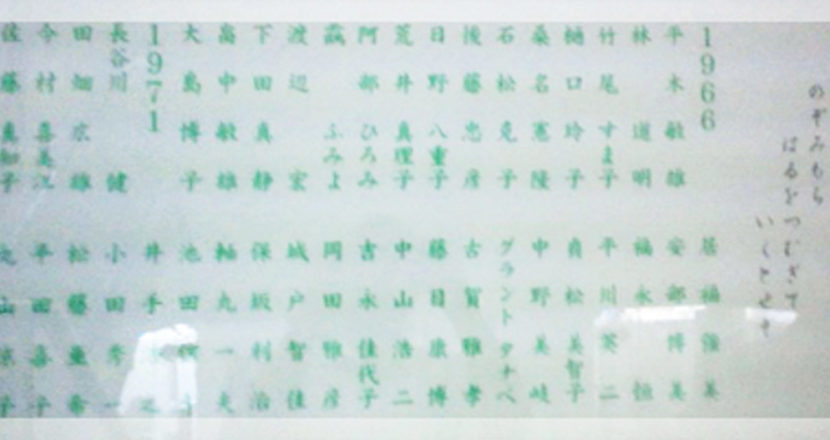 のぞみもち
はるをつむぎて
いくとせも
1966
平木敏雄
林道明
竹尾すま子
樋口玲子
桑名憲隆
石松克子
後藤忠彦
日野八重子
荒井真理子
阿部ひろみ
蕗ふみよ
渡辺宏
下田真静
畠中敏雄
大島博子
1971
長谷川健
田畑広雄
今村喜美江
佐藤真知子
居福雅美
安部博美
福永恒
平川英二
貞松美智子
中野美岐
グラント タナベ
古賀雅孝
藤目康博
中山浩二
吉永佳代子
岡田雅彦
城戸智佳
保坂利治
軸丸一夫
池田
井手
小田秀一
松藤亜希
平田喜子